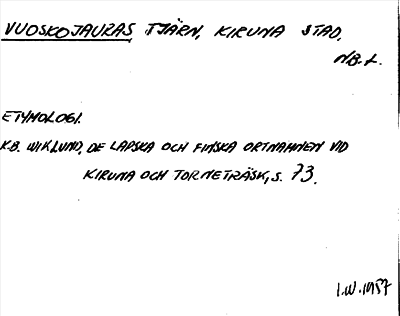 VUOSKOJAURAS, TJÄRN, KIRUNA STAD.
NB.L.
ETYMOLOGI.
K.B. WIKLUND, DE LAPSKA OCH FINSKA ORTNAMNEN VID
KIRUNA OCH TORNETRÄSK, S. 73.
I.W. 1957